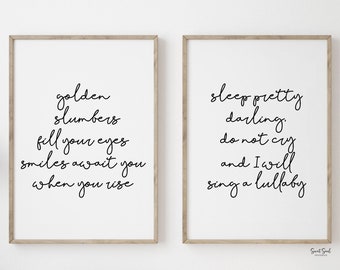 golden
slumbers
fill your eyes
smiles await you
when you rise
sleep pretty
darling,
do not cry
and I will
sing a lullaby